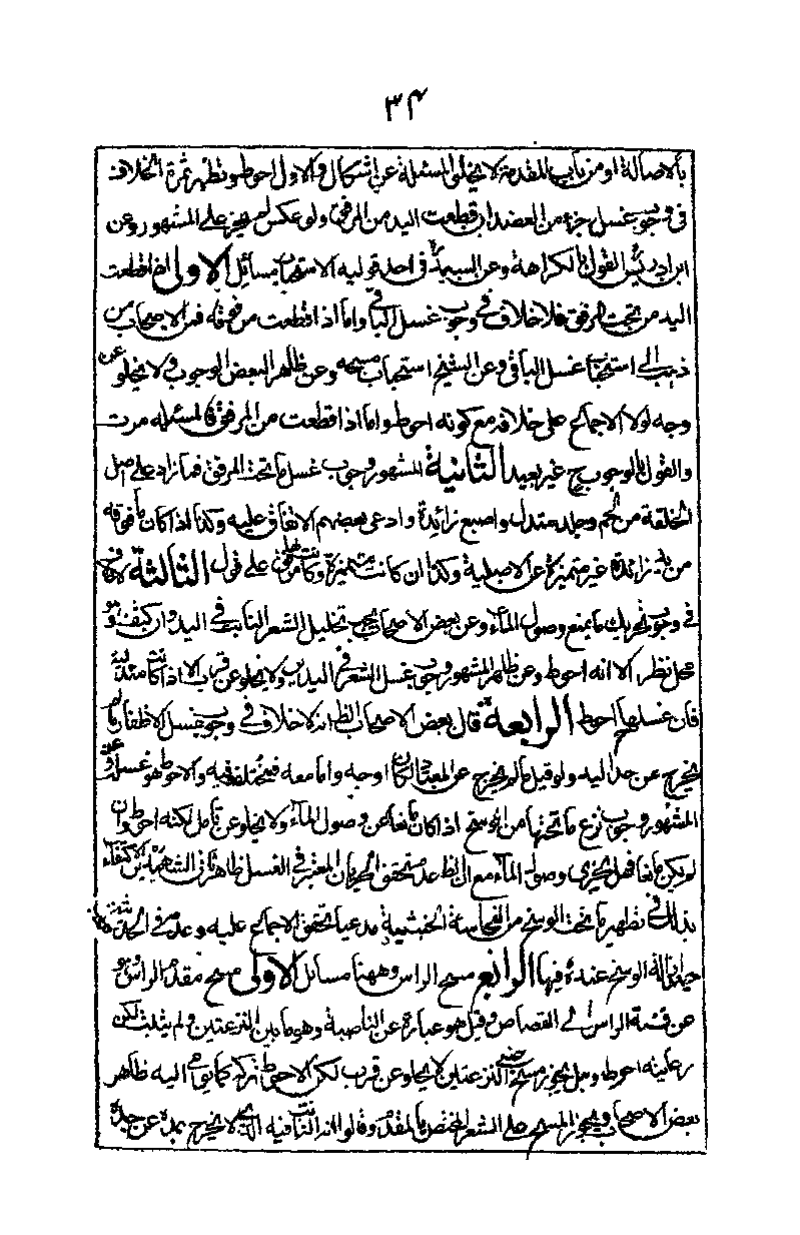 ٣٤
بالاصالة او من باب المقدمة لا يخلو المسئلة عن اشكال والاول احوط وتظهر ثمرة الخلاف
فى وجوب غسل جزء من العضد ان قطعت اليد من المرفق ولو عكس لم يجز على المشهور وعن
ابن ادريس القول بالكراهة وعن السيد فى احد قوليه الاستحباب مسائل الاولى اذا قطعت
اليد من تحت المرفق فلا خلاف فى وجوب غسل الباقى واما اذا قطعت من فوقه فمن الاصحاب من
ذهب الى استحباب غسل الباقى وعن الشيخ استحباب مسحه وعن ظاهر البعض الوجوب ولا يخلو عن
وجه لولا الاجماع على خلافه مع كونه احوط واما اذا قطعت من المرفق فالمسئلة مرت
والقول بالوجوب ح غير بعيد الثانية المشهور وجوب غسل ما تحت المرفق فما زاد على اصل
الخلقة من لحم وجلد متدل واصبع زائدة وادعى بعضهم الاتفاق عليه وكذا اذا كان ما فوقه
من يد زائدة غير متميزة عن الاصلية وكذا ان كانت متميزة على قول الثالثة لا خلاف
فى وجوب تحريك ما يمنع وصول الماء وعن بعض الاصحاب يجب تخليل الشعر النابت فى اليد وان كثف وهو
محل نظر الا انه احوط وعن ظاهر المشهور وجوب غسل الشعر فى اليدين ولا يخلو عن قرب الا اذا كانت متدلية
فان غسلها احوط الرابعة قال بعض الاصحاب الظ انه لا خلاف فى وجوب غسل الاظفار ما لم
يخرج عن حد اليد ولو قيل ما لم يخرج عن المعتاد لكان اوجه واما معه فمختلف فيه والاحوط هو غسله وعن
المشهور وجوب نزع ما تحتها من الوسخ اذا كان مانعا عن وصول الماء ولا يخلو عن تامل لكنه احوط وان
لم يكن مانعا فهل يجزى وصول الماء مع الظ عدم تحقق الجريان المعتبر فى الغسل ظاهرا الاكتفاء
بذلك فى تطهير ما تحت الوسخ من النجاسة الخبثية مدعيا تحقق الاجماع عليه وعدمه فى الحدثية
حيلولة الوسخ عنده فيها الرابع مسح الراس وههنا مسائل الاولى مسح مقدم الراس وهو
من قمة الراس الى القصاص وقيل هو عبارة عن الناصية وهو ما بين النزعتين ولم يثبت لكن
رعايته احوط وهل يجوز مسح النزعتين لا يخلو عن قرب لكن الاحوط تركه كما يومى اليه ظاهر
بعض الاصحاب ويجوز المسح على الشعر المختص بالمقدم وقالوا انه النابت فيه الذى لا يخرج بمده عن حده